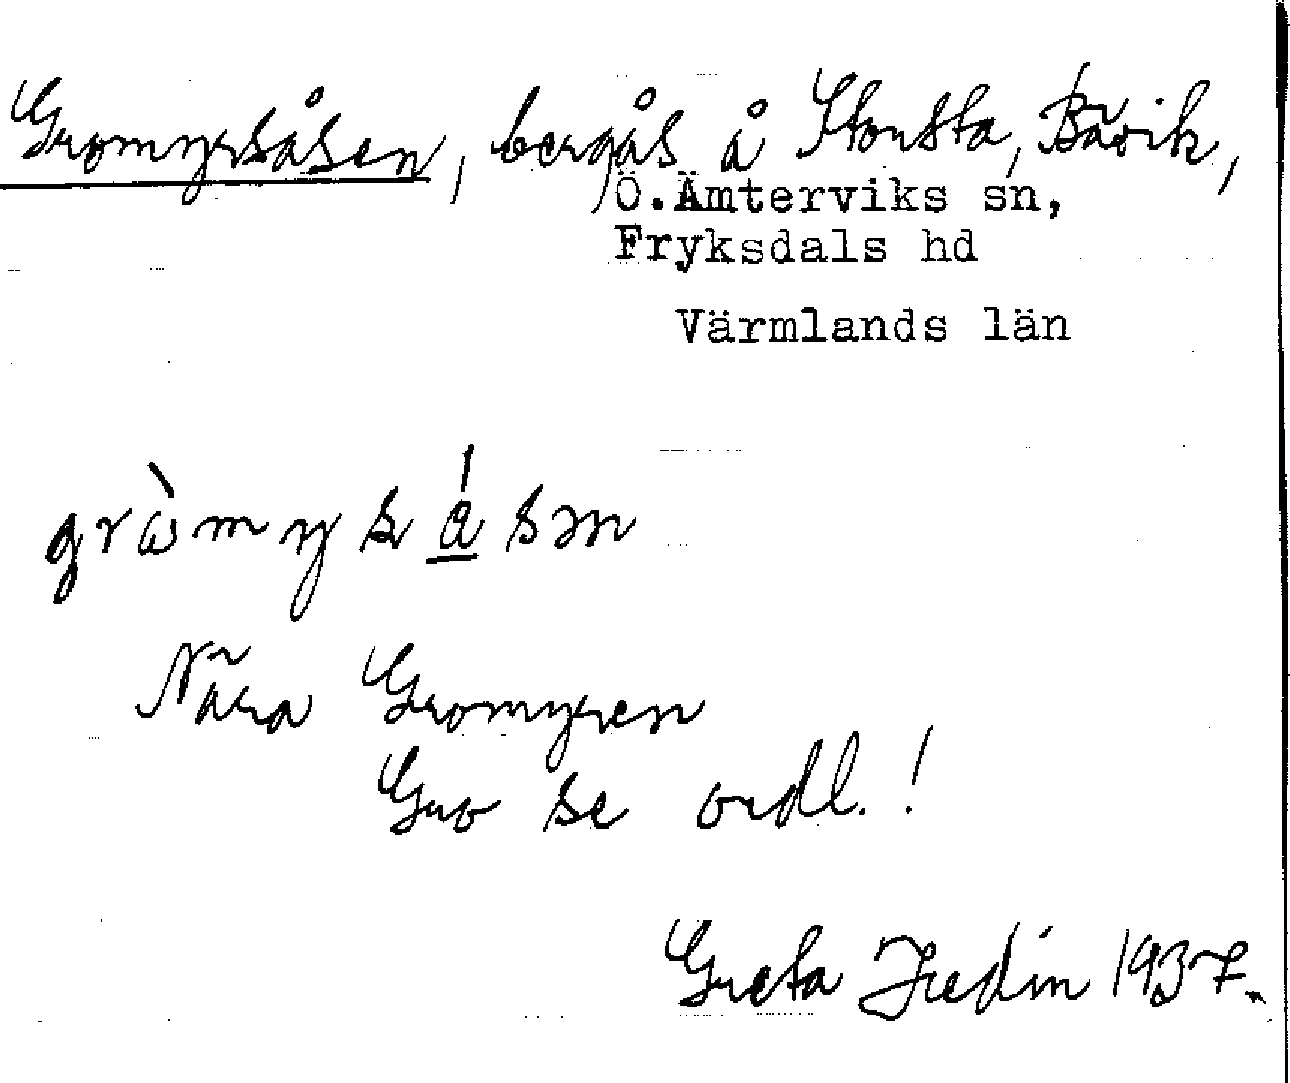 Gromyrsåsen, bergås å Stousta, Bävik,
Ö.Ämterviks sn,
Fryksdals hd
Värmlands län
grὼmysása̲sən
Nära Gromyren
Gro se ordl.!
Greta Hedin 1937.